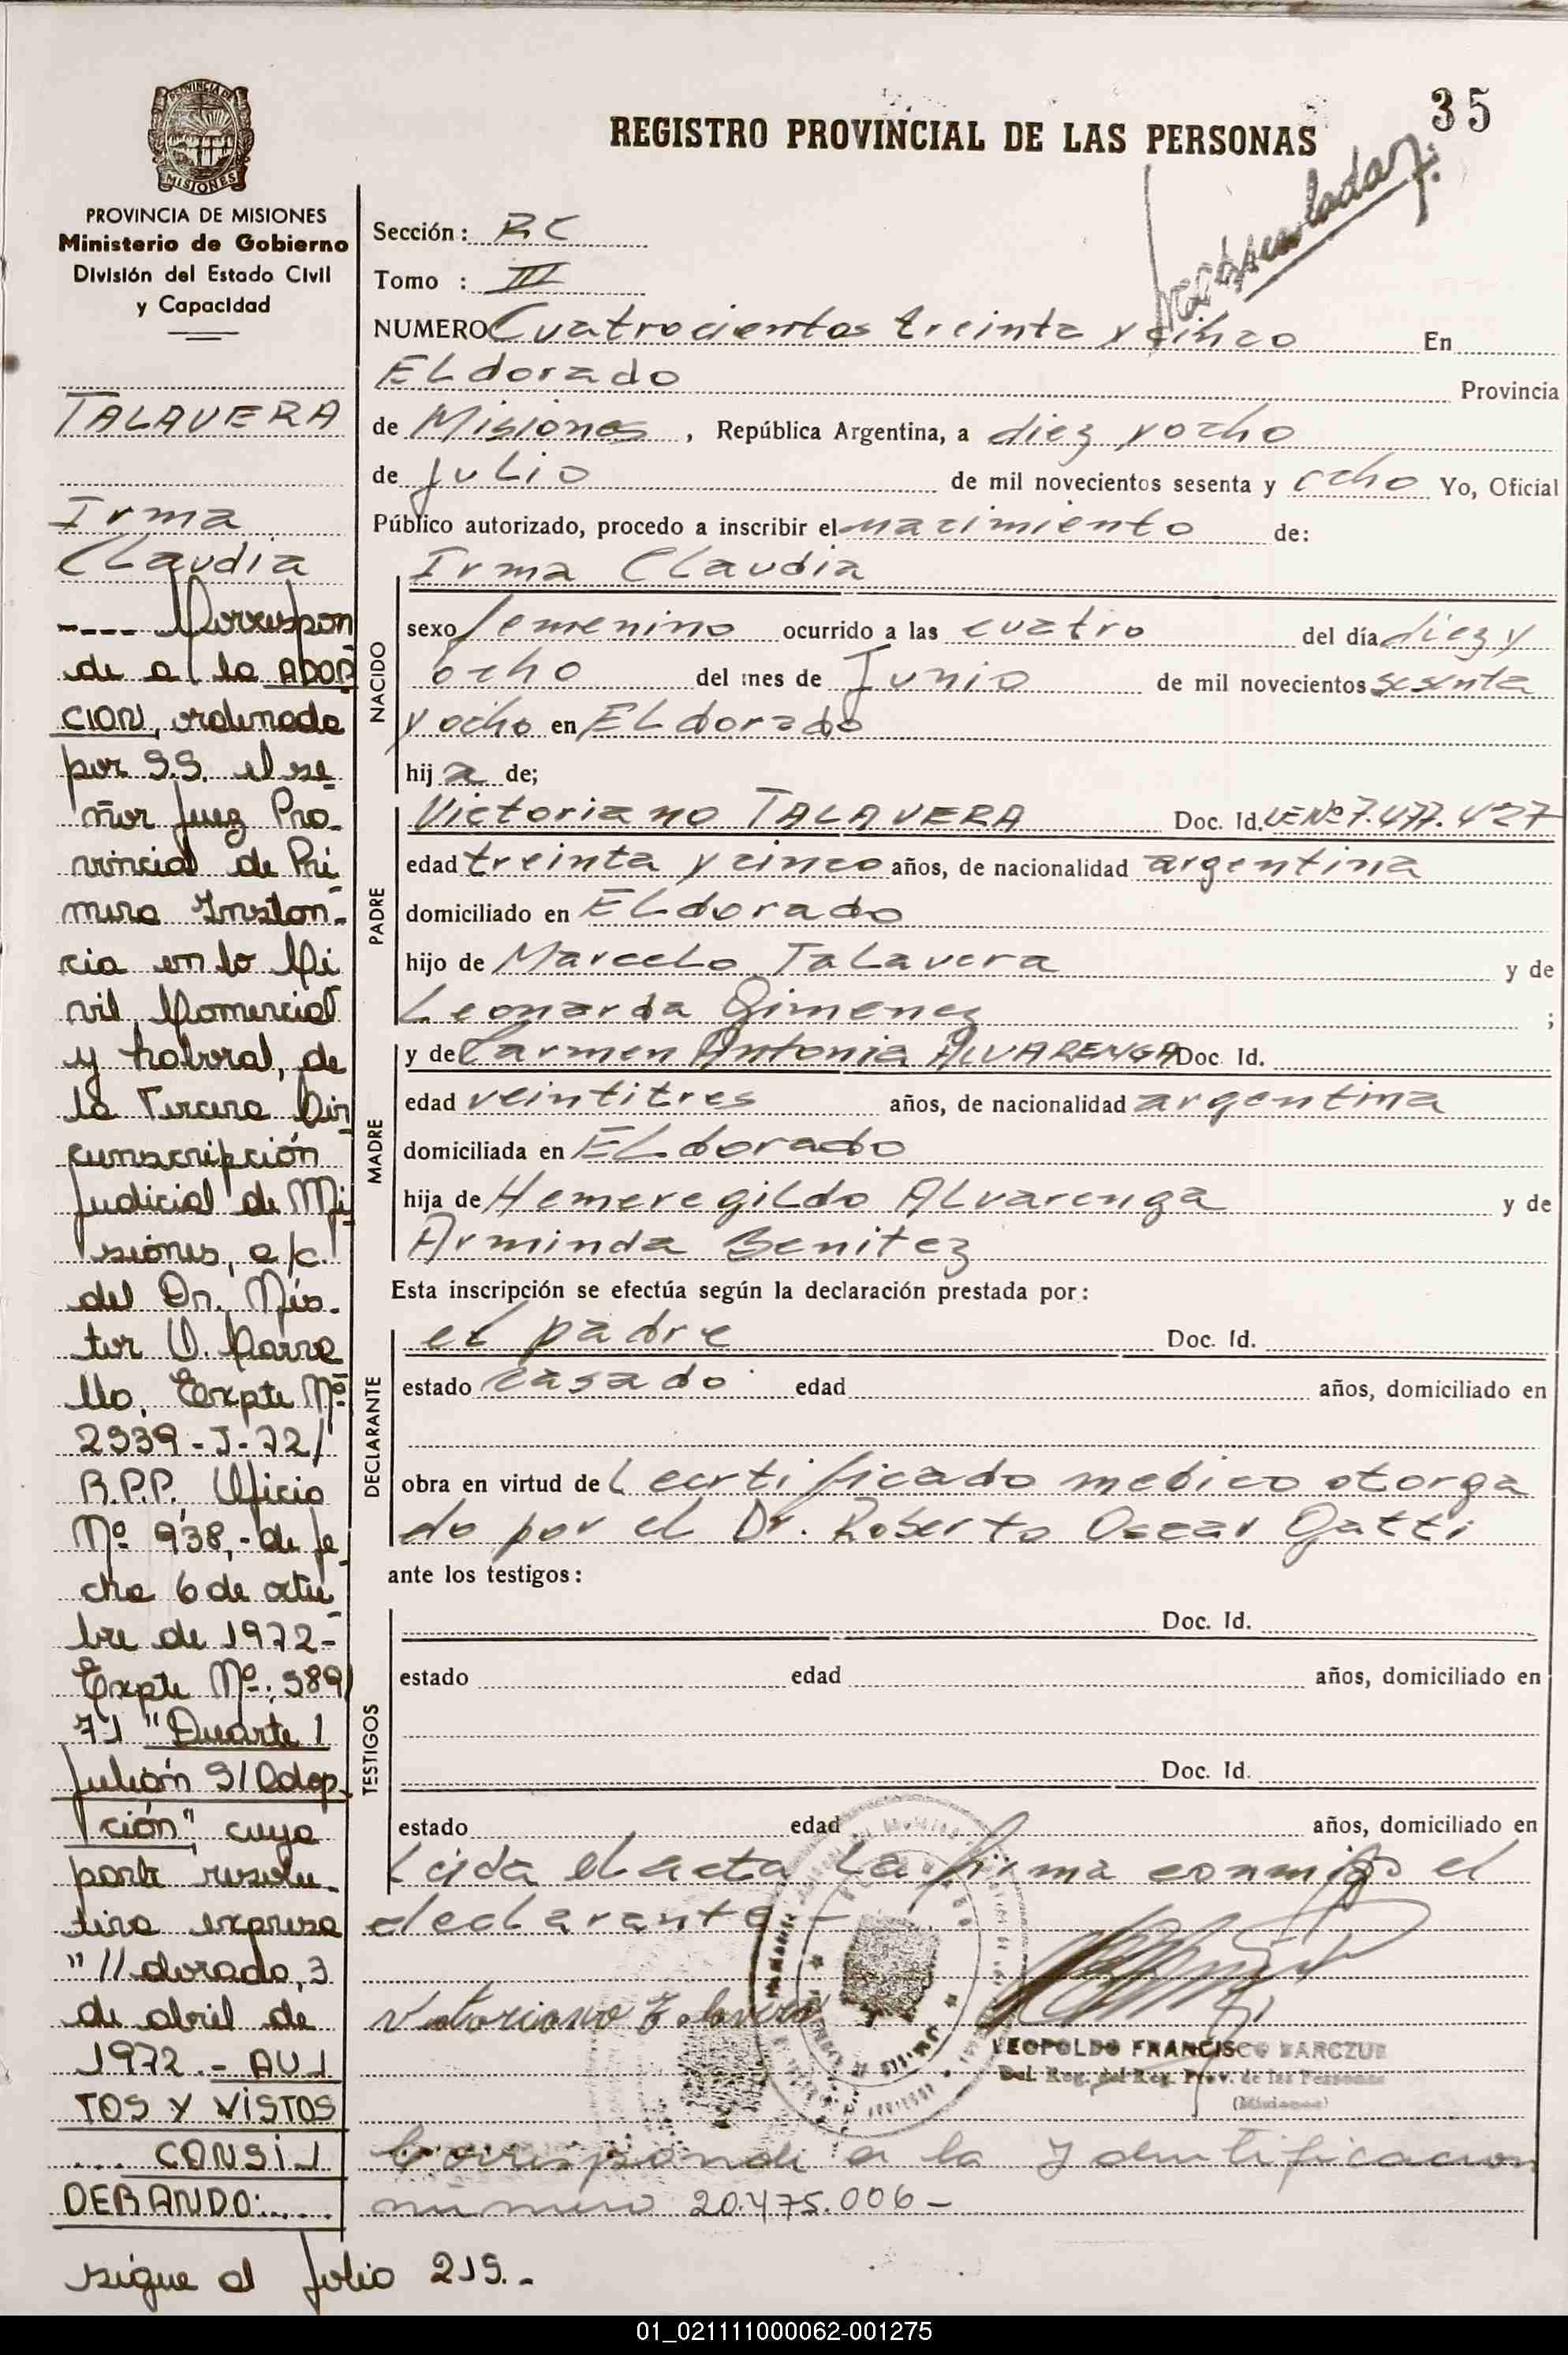 35
REGISTRO PROVINCIAL DE LAS PERSONAS
PROVINCIA DE MISIONES
PROVINCIA DE MISIONES
Ministerio de Gobierno
División del Estado Civil
y Capacidad
TALAVERA
Irma
Claudia
---- Correspon
de a la ADOP
CION, ordenada
por S.S. el se-
ñor Juez Pro-
vincial de Pri
mera Instan-
cia en lo Ci
vil Comercial
y Laboral, de
la Tercera Cir
cunscripción
Judicial de Mi
siones, a/c.
del Dr. Nés-
tor O. Parra
llo, Expte Nº
2939-J-72/
R.P.P. Oficio
Nº 938,- de fe
cha 6 de octu
bre de 1972-
Expte Nº: 589/
71 "Duarte
Julián S/Adop
ción", cuya
parte resolu-
tiva expresa
"//dorado, 3
de abril de
1972.- AU
TOS Y VISTOS
... CONSI
DERANDO:.....
sigue al folio 219.-
Sección: RC
Tomo : III
NUMERO Cuatrocientos treinta y cinco En
ELdorado Provincia
de Misiones, República Argentina, a diez y ocho
de Julio de mil novecientos sesenta y ocho Yo, Oficial
Público autorizado, procedo a inscribir el nacimiento de:
NACIDO
Irma Claudia
sexo femenino ocurrido a las cuatro del día diez y
ocho del mes de Junio de mil novecientos sesenta
y ocho en ELdorado
hija de;
PADRE
Victoriano TALAVERA Doc. Id. LE Nº 7.477.427
edad treinta y cinco años, de nacionalidad argentina
domiciliado en ELdorado
hijo de Marcelo Talavera y de
Leonarda Gimenez ;
MADRE
y de Carmen Antonia ALVARENGA Doc. Id.
edad veintitres años, de nacionalidad argentina
domiciliada en ELdorado
hija de Hemeregildo Alvarenga y de
Arminda Benitez
Esta inscripción se efectúa según la declaración prestada por:
DECLARANTE
el padre Doc. Id.
estado casado edad años, domiciliado en
obra en virtud del certificado medico otorga
do por el Dr. Roberto Oscar Gatti
ante los testigos:
TESTIGOS
Doc. Id.
estado edad años, domiciliado en
Doc. Id.
estado edad años, domiciliado en
Leida el acta la firma conmigo el
declarante -
Victoriano Talavera
LEOPOLDO FRANCISCO
Del. Reg. del Reg. Prov. de las Personas
(Misiones)
Corresponde a la Identificacion
numero 20.475.006-
01_021111000062-001275